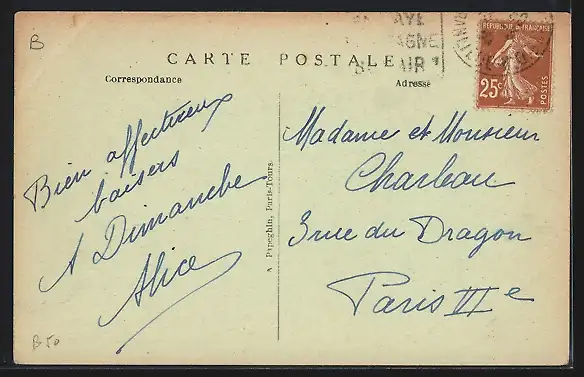 B
CARTE POSTALE
Correspondance
Adresse
RÉPUBLIQUE FRANÇAISE
25c
POSTES
Bien affectueux
baisers
A Dimanche
Alice
A. Papeghin, Paris-Tours.
Madame et Monsieur
Charleau
3 rue du Dragon
Paris VIe
B50